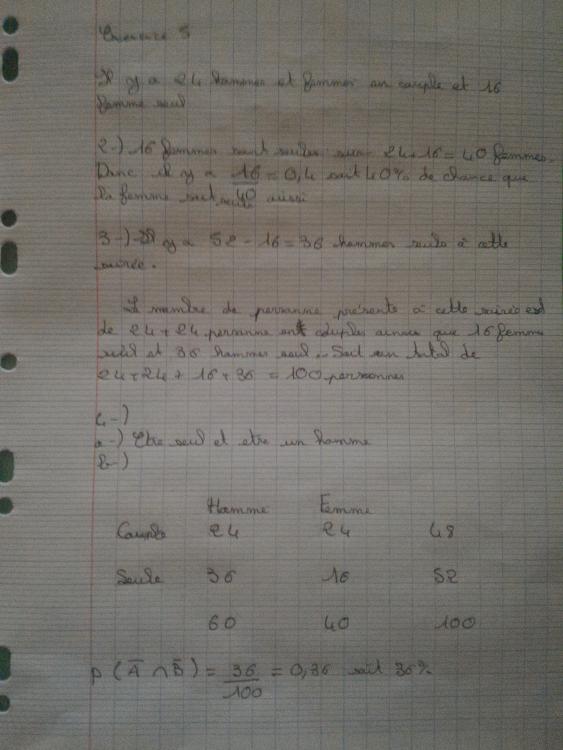 Exercice 5
Il y a 24 hommes et femmes en couple et 16
femme seul
2-) 16 femmes sont seules sur 24+16 = 40 femmes.
Donc il y a 16/40 = 0,4 soit 40% de chance que
la femme soit seule aussi
3-) Il y a 52 - 16 = 36 hommes seuls à cette
soirée.
Le nombre de personne présente à cette soirée est
de 24 + 24 personne en couples ainsi que 16 femme
seul et 36 hommes seul. Soit un total de
24 + 24 + 16 + 36 = 100 personnes
4-)
a-) Etre seul et etre un homme
b-)
Homme Femme
Couple 24 24 48
Seule 36 16 52
60 40 100
p (Ā ∩ B̄) = 36/100 = 0,36 soit 36%